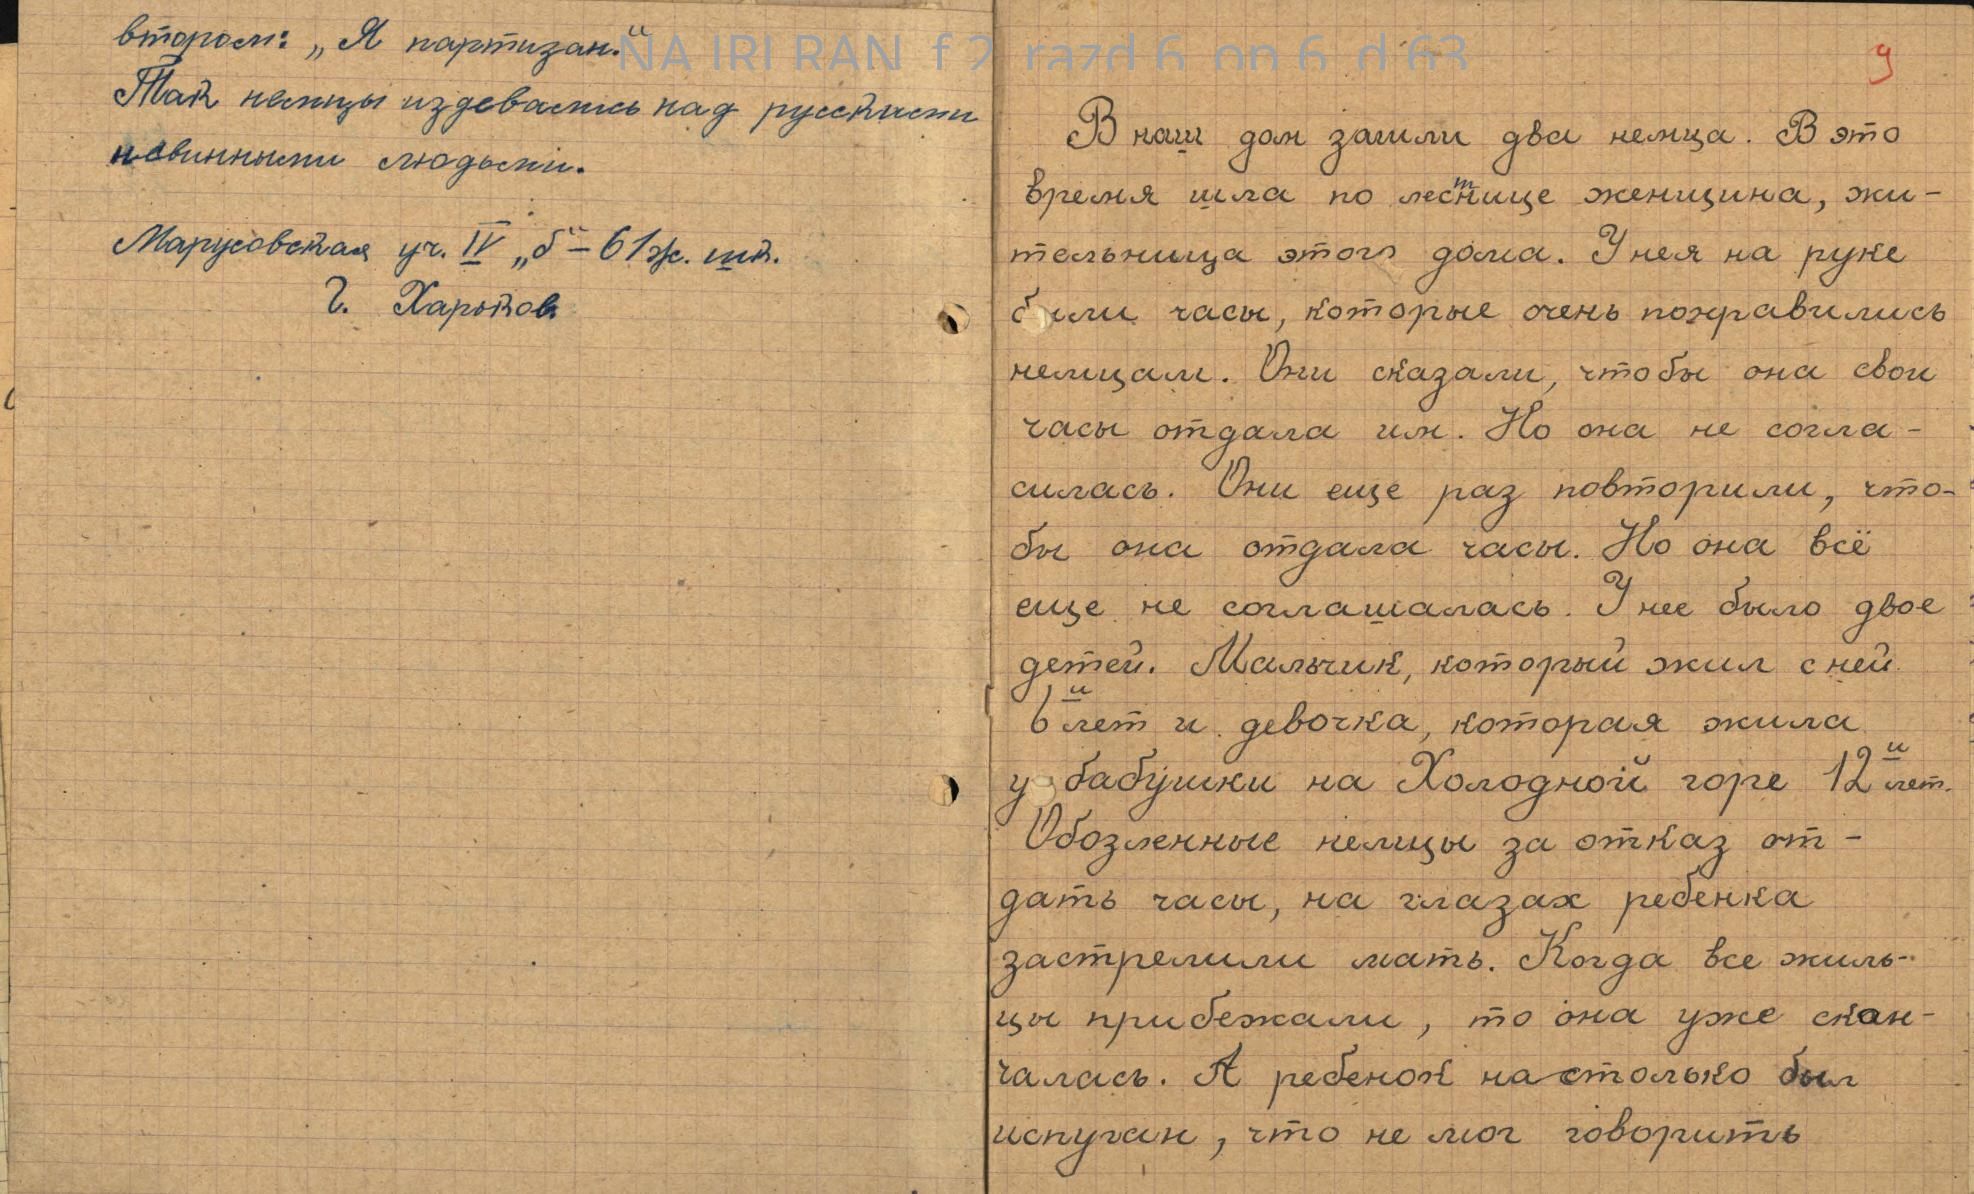 втором: „Я партизан.“
Так немцы издевались над русскими
невинными людьми.
Марусовская уч. IV „б“ – 61 ж. шк.
г. Харьков.
NA IRI RAN f 2 razd 6 op 6 d 63
9
В наш дом зашли два немца. В это
время шла по лестнице женщина, жи-
тельница этого дома. У нея на руке
были часы, которые очень понравились
немцам. Они сказали, чтобы она свои
часы отдала им. Но она не согла-
силась. Они еще раз повторили, что-
бы она отдала часы. Но она всё
еще не соглашалась. У нее было двое
детей. Мальчик, который жил с ней
6и лет и девочка, которая жила
у бабушки на Холодной горе 12и лет.
Обозленные немцы за отказ от-
дать часы, на глазах ребенка
застрелили мать. Когда все жиль-
цы прибежали, то она уже скон-
чалась. А ребенок настолько был
испуган, что не мог говорить